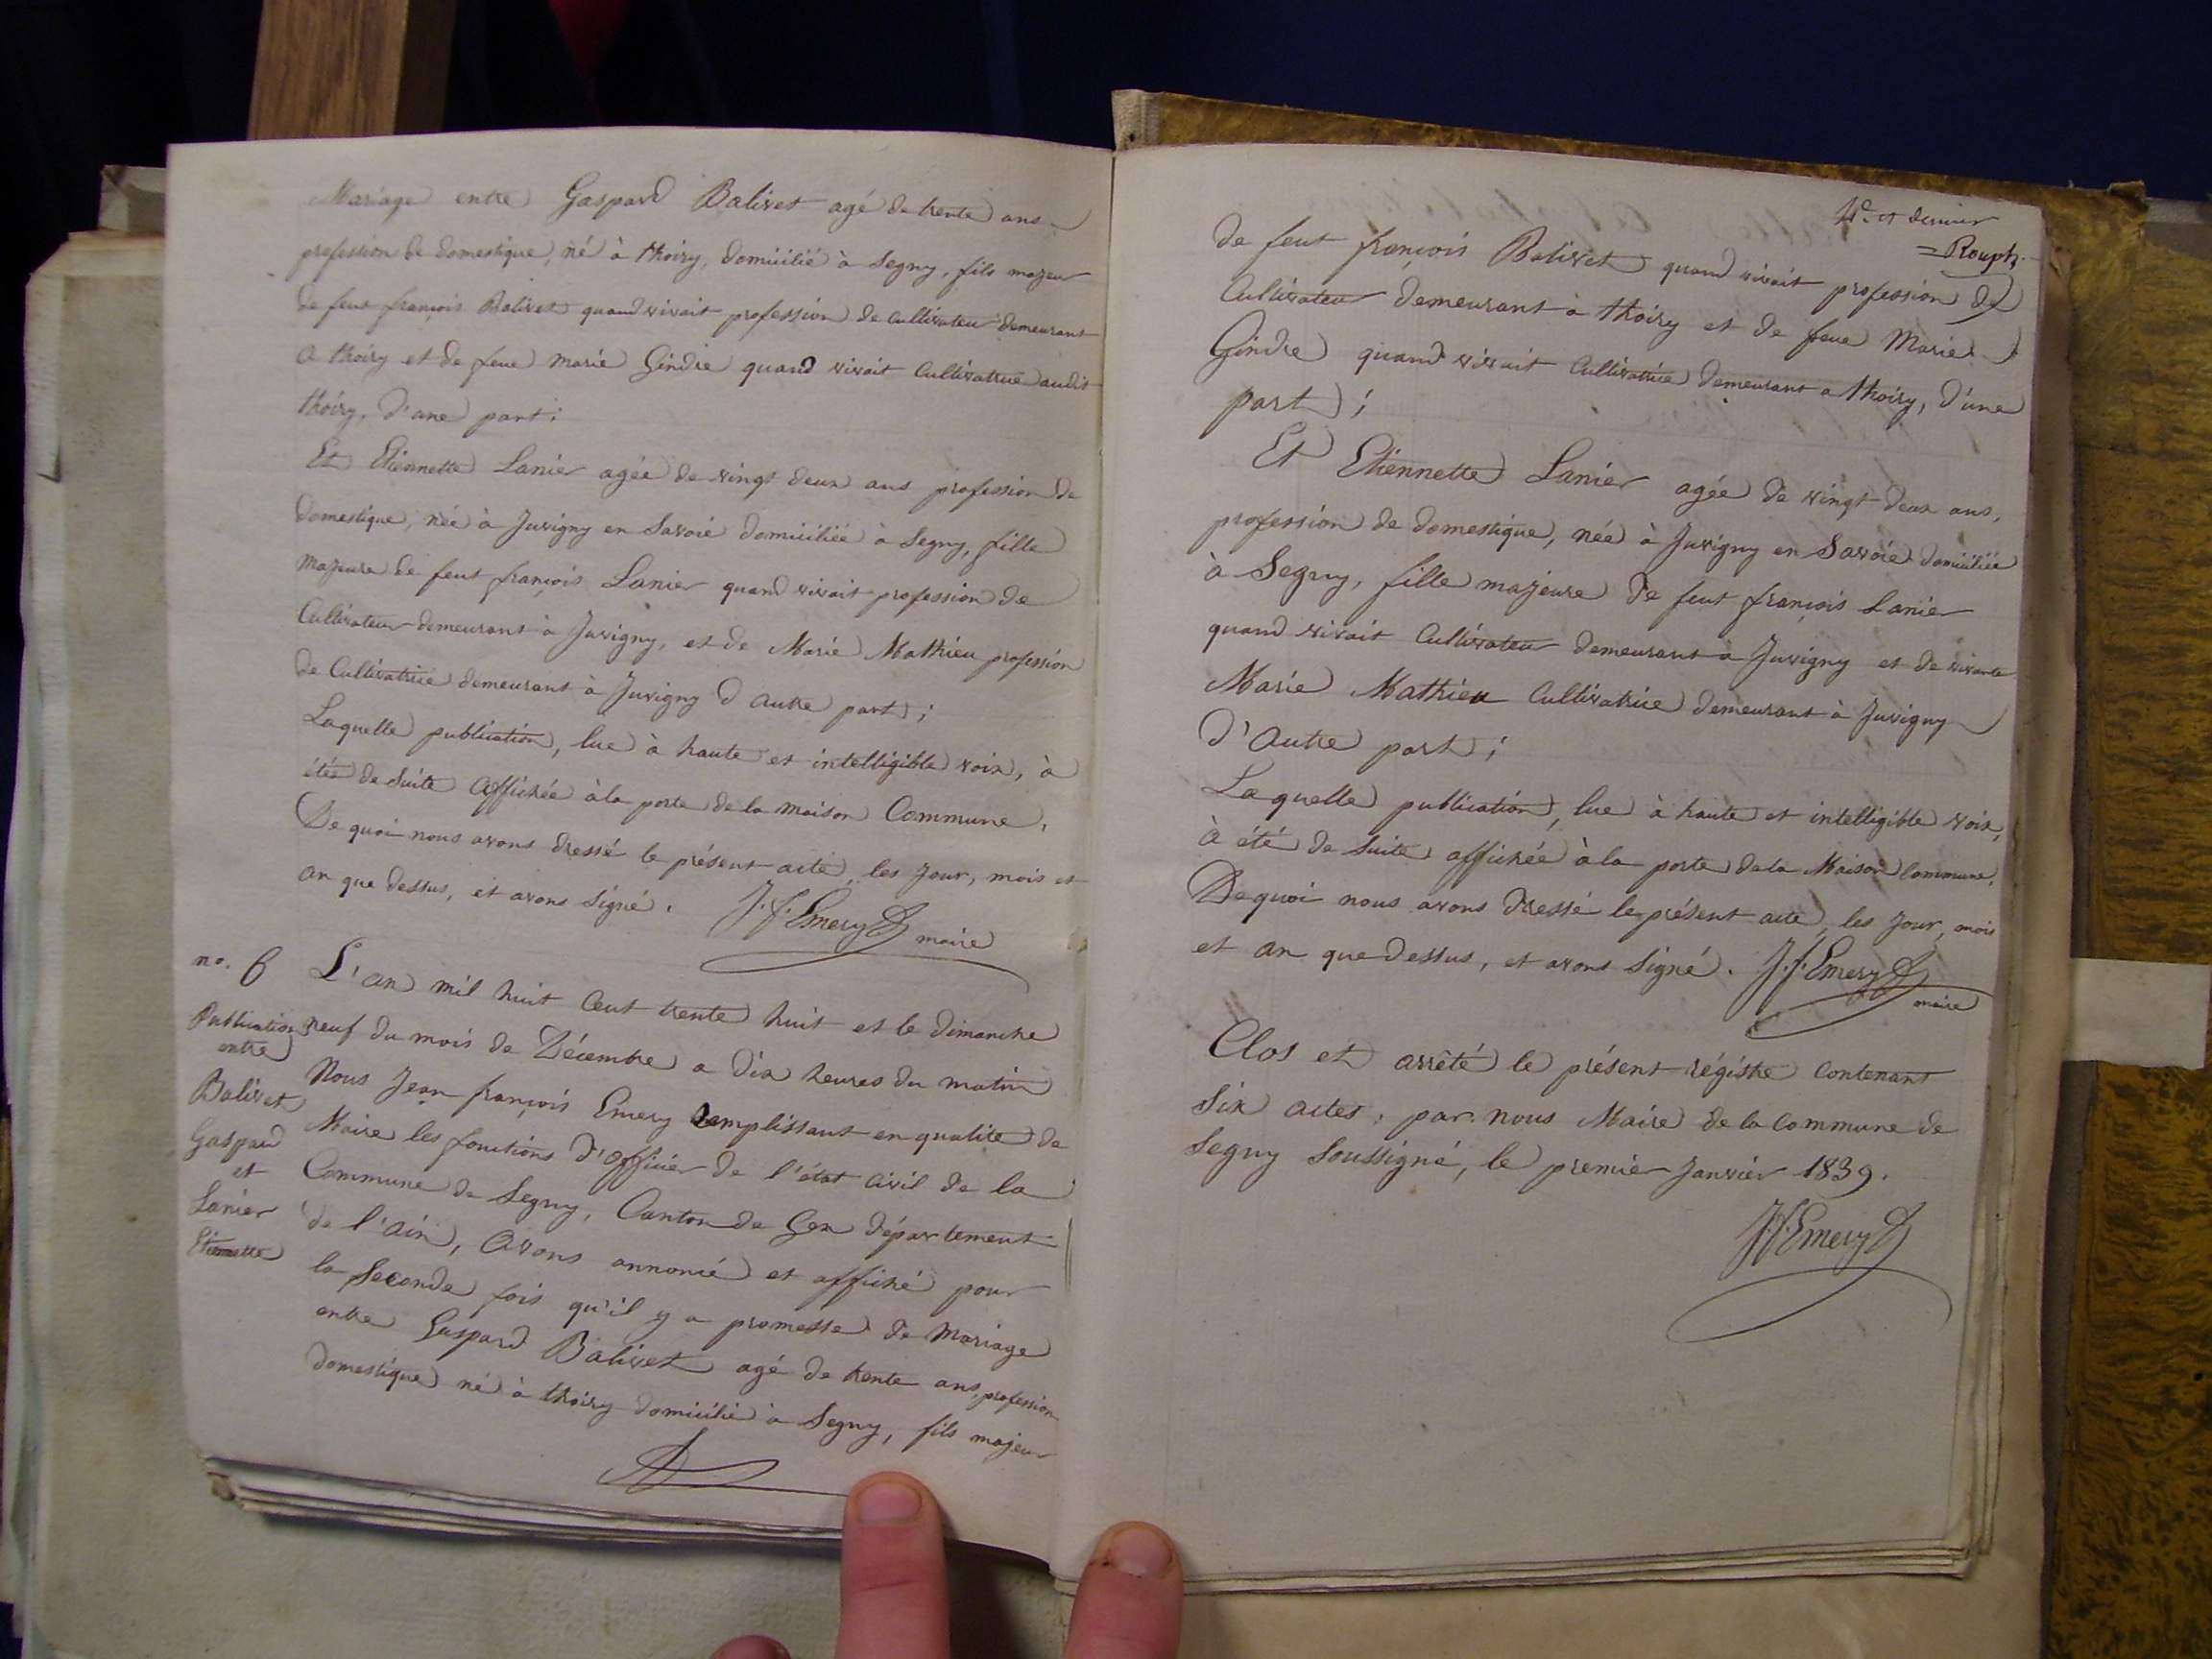 Mariage entre Gaspard Balivet agé de trente ans
profession de domestique, né à thoiry, domicilié à Segny, fils majeur
de feut françois Balivet quand vivait profession de cultivateur demeurant
a thoiry et de feue marie Gindre quand vivait Cultivatrice audit
thoiry, d'une part ;
Et Etiennette Lanier agée de vingt deux ans profession de
domestique, née à Juvigny en Savoie domiciliée à Segny, fille
majeure de feut françois Lanier quand vivait profession de
Cultivateur demeurant à Juvigny, et de Marie Mathieu profession
de Cultivatrice demeurant à Juvigny d'autre part ;
Laquelle publication, lue à haute et intelligible voix, à
étée de suite affichée à la porte de la maison Commune.
De quoi nous avons dressé le présent acte, les jour, mois et
an que dessus, et avons signé. J. f. Emery maire
no. 6 L'an mil huit Cent trente huit et le dimanche
Publication neuf du mois de Décembre a dix heures du matin
entre Nous Jean françois Emery Remplissant en qualité de
Balivet Maire les fonctions d'officier de l'état civil de la
Gaspard Commune de Segny, Canton de Gex département
et de l'ain, Avons annoncé et affiché pour
Lanier la Seconde fois qu'il y a promesse de Mariage
Etiennette entre Gaspard Balivet agé de trente ans, profession
domestique né à thoiry domicilié à Segny, fils majeur
4e. et dernier
= Rouph
de feut françois Balivet quand vivait profession de
Cultivateur demeurant à thoiry et de feue Marie
Gindre quand vivait Cultivatrice demeurant a thoiry, d'une
part ;
Et Etiennette Lanier agée de vingt deux ans,
profession de domestique, née à Juvigny en Savoie domiciliée
à Segny, fille majeure de feut françois Lanier
quand vivait Cultivateur demeurant a Juvigny et de vivante
Marie Mathieu Cultivatrice demeurant à Juvigny
D'autre part ;
Laquelle publication, lue à haute et intelligible voix,
à été de suite affichée à la porte de la Maison Commune.
De quoi nous avons dressé le présent acte, les jour, mois
et an que dessus, et avons signé. J. f. Emery
maire
Clos et arrêté le présent régistre Contenant
Six actes, par nous Maire de la Commune de
Segny Soussigné, le premier Janvier 1839.
J f Emery